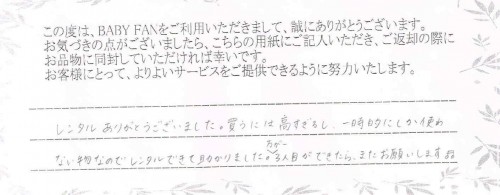 この度は、BABY FANをご利用いただきまして、誠にありがとうございます。
お気づきの点がございましたら、こちらの用紙にご記入いただき、ご返却の際に
お品物に同封していただければ幸いです。
お客様にとって、よりよいサービスをご提供できるように努力いたします。
レンタルありがとうございました。買うには高すぎるし、一時的にしか使わ
ない物なのでレンタルできて助かりました。万が一3人目ができたら、またお願いします